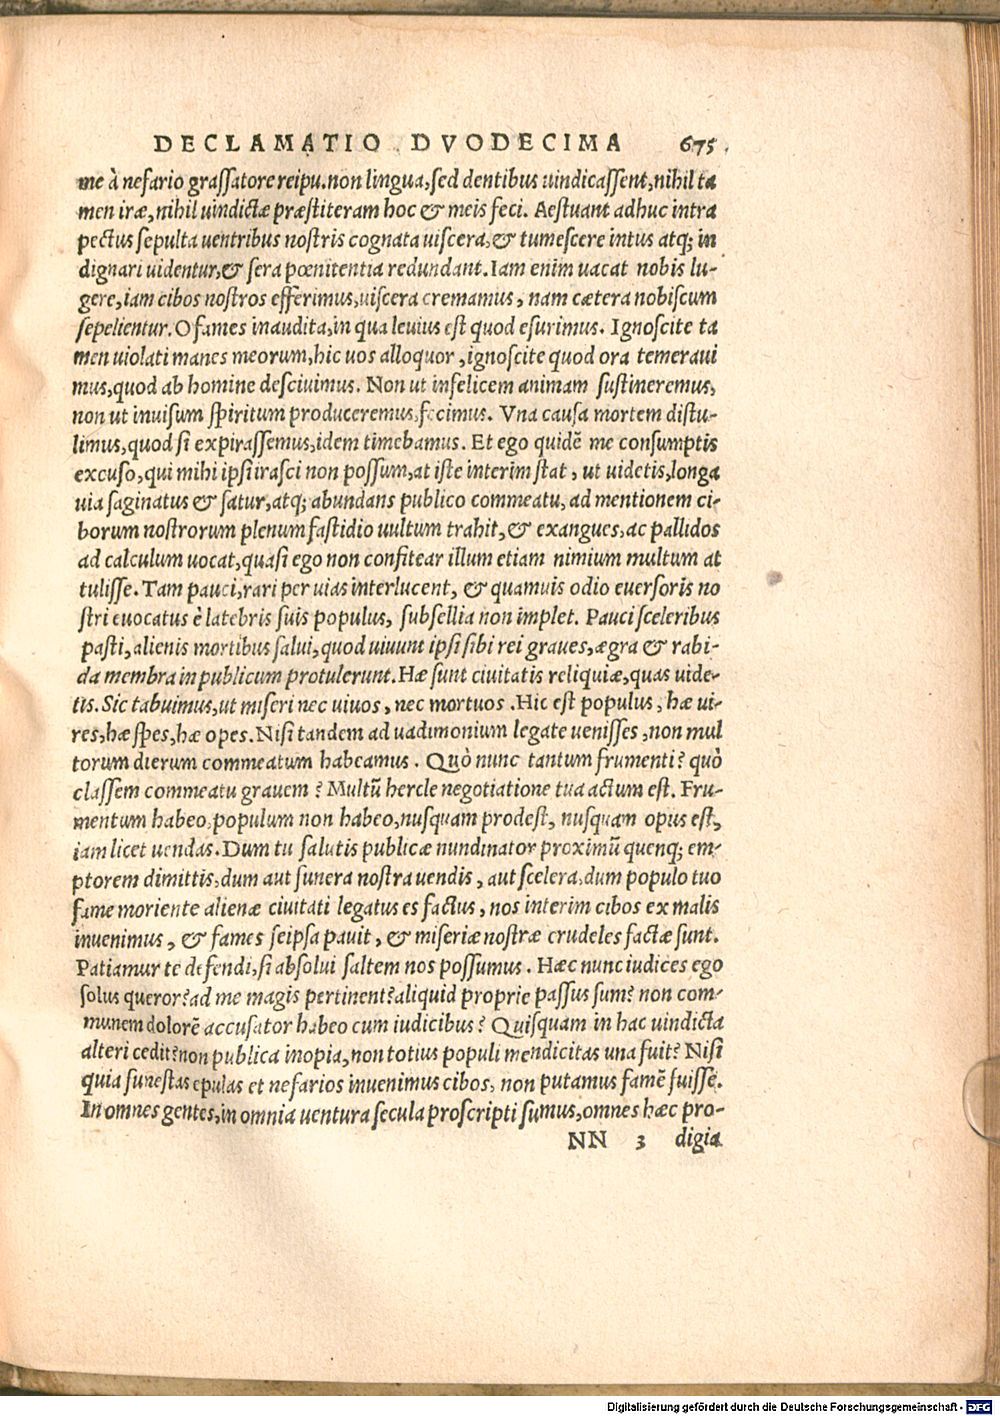 DECLAMATIO DVODECIMA 675
me à nefario grassatore reipu. non lingua, sed dentibus uindicassent, nihil ta
men iræ, nihil uindictæ præstiteram hoc & meis feci. Aestuant adhuc intra
pectus sepulta uentribus nostris cognata uiscera, & tumescere intus atq; in
dignari uidentur, & sera pœnitentia redundant. Iam enim uacat nobis lu-
gere, iam cibos nostros efferimus, uiscera cremamus, nam cætera nobiscum
sepelientur. O fames inaudita, in qua leuius est quod esurimus. Ignoscite ta
men uiolati manes meorum, hic uos alloquor, ignoscite quod ora temeraui
mus, quod ab homine desciuimus. Non ut infelicem animam sustineremus,
non ut inuisum spiritum produceremus, fecimus. Vna causa mortem distu-
limus, quod si expirassemus, idem timebamus. Et ego quidē me consumptis
excuso, qui mihi ipsi irasci non possum, at iste interim stat, ut uidetis, longa
uia saginatus & satur, atq; abundans publico commeatu, ad mentionem ci-
borum nostrorum plenum fastidio uultum trahit, & exangues, ac pallidos
ad calculum uocat, quasi ego non confitear illum etiam nimium multum at
tulisse. Tam pauci, rari per uias interlucent, & quamuis odio euersoris no
stri euocatus è latebris suis populus, subsellia non implet. Pauci sceleribus
pasti, alienis mortibus salui, quod uiuunt ipsi sibi rei graues, ægra & rabi-
da membra in publicum protulerunt. Hæ sunt ciuitatis reliquiæ, quas uide-
tis. Sic tabuimus, ut miseri nec uiuos, nec mortuos. Hic est populus, hæ ui-
res, hæ spes, hæ opes. Nisi tandem ad uadimonium legate uenisses, non mul
torum dierum commeatum habeamus. Quò nunc tantum frumenti? quò
classem commeatu grauem? Multū hercle negotiatione tua actum est. Fru-
mentum habeo, populum non habeo, nusquam prodest, nusquam opus est,
iam licet uendas. Dum tu salutis publicæ nundinator proximū quenq; em-
ptorem dimittis, dum aut funera nostra uendis, aut scelera, dum populo tuo
fame moriente alienæ ciuitati legatus es factus, nos interim cibos ex malis
inuenimus, & fames seipsa pauit, & miseriæ nostræ crudeles factæ sunt.
Patiamur te defendi, si absolui saltem nos possumus. Hæc nunc iudices ego
solus queror? ad me magis pertinent? aliquid proprie passus sum? non com-
munem dolorē accusator habeo cum iudicibus? Quisquam in hac uindicta
alteri cedit? non publica inopia, non totius populi mendicitas una fuit? Nisi
quia funestas epulas et nefarios inuenimus cibos, non putamus famē fuisse.
In omnes gentes, in omnia uentura secula proscripti sumus, omnes hæc pro-
NN 3 digia
Digitalisierung gefördert durch die Deutsche Forschungsgemeinschaft - DFG